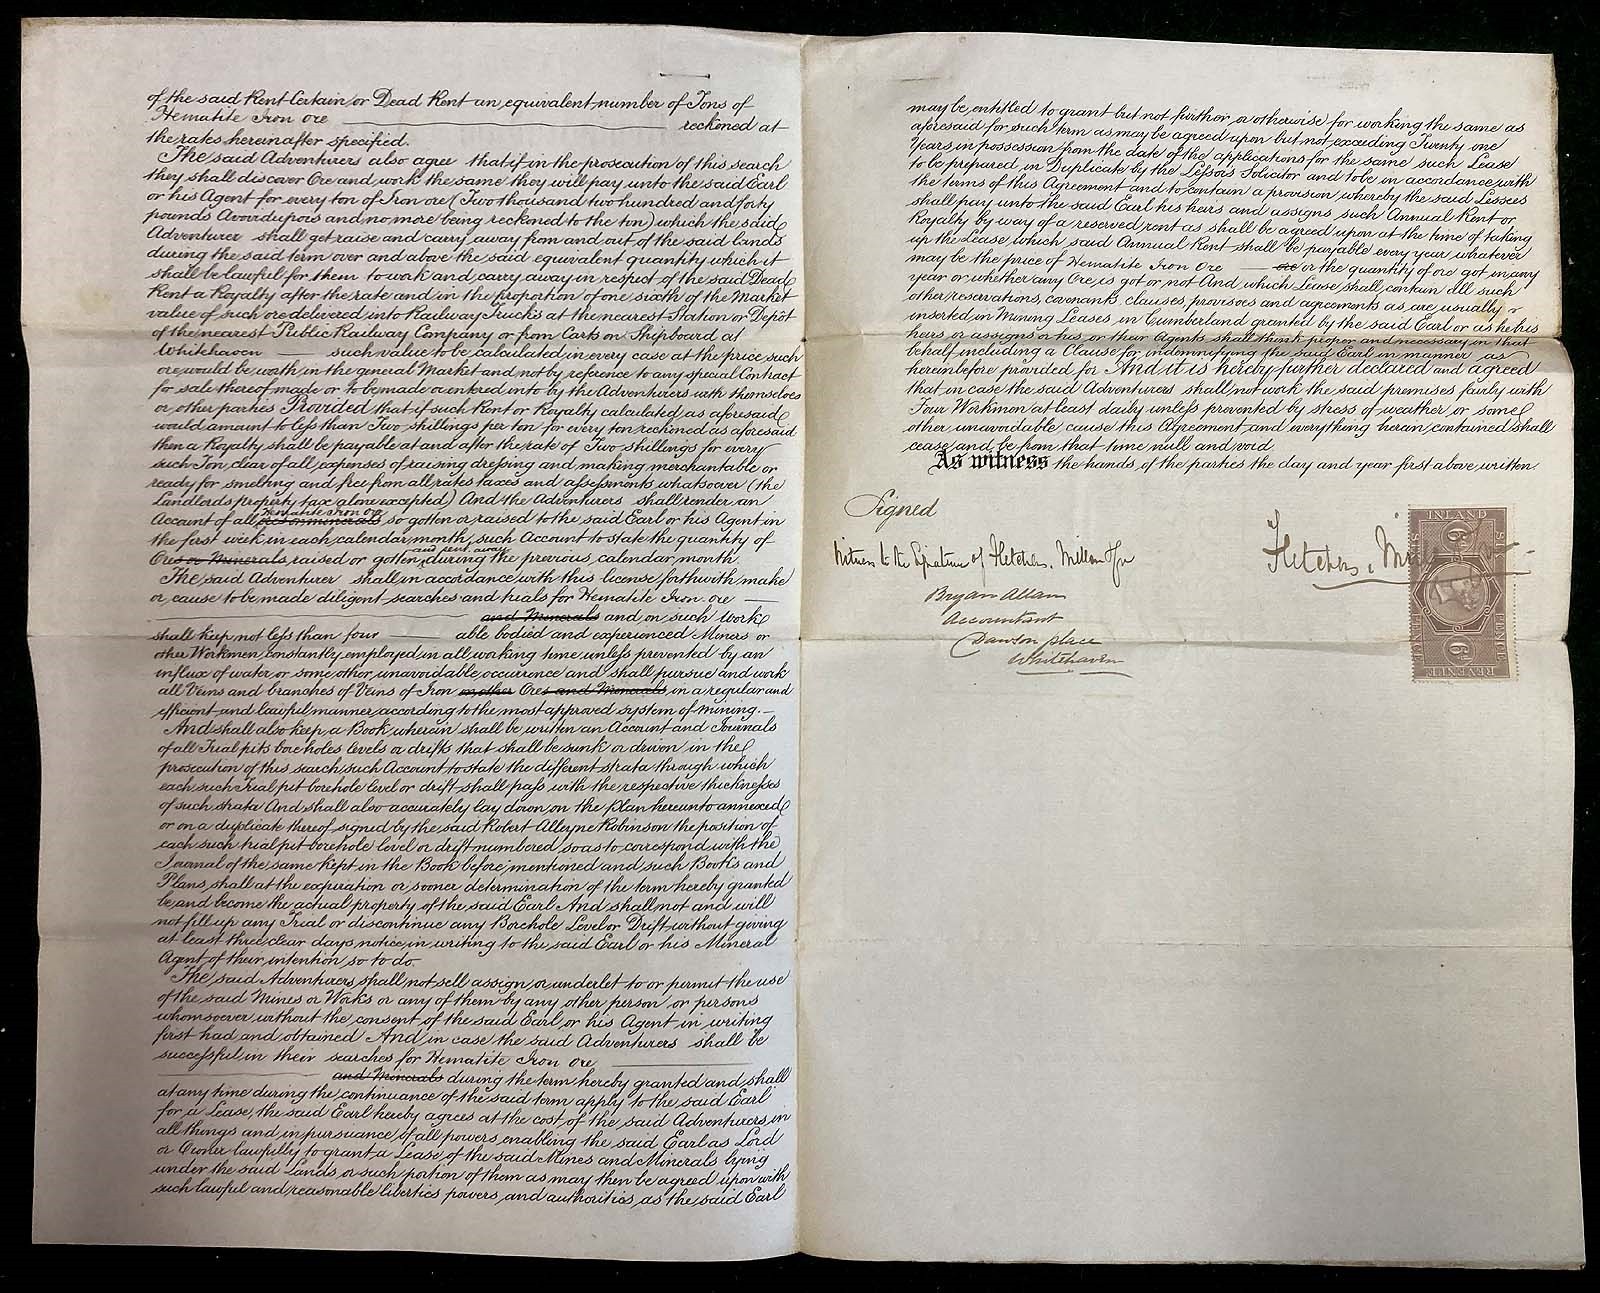 of the said Rent Certain or Dead Rent an equivalent number of Tons of
Hematite Iron ore reckoned at
the rates hereinafter specified.
The said Adventurers also agree that if in the prosecution of this search
they shall discover Ore and work the same they will pay unto the said Earl
or his Agent for every ton of Iron ore (Two thousand two hundred and forty
pounds Avoirdupois and no more being reckoned to the ton) which the said
Adventurer shall get raise and carry away from and out of the said lands
during the said term over and above the said equivalent quantity which it
shall be lawful for them to work and carry away in respect of the said Dead
Rent a Royalty after the rate and in the proportion of one sixth of the Market
value of such ore delivered into Railway Trucks at the nearest Station or Depôt
of the nearest Public Railway Company or from Carts on Shipboard at
Whitehaven such value to be calculated in every case at the price such
ore would be worth in the general Market and not by reference to any special Contract
for sale thereof made or to be made or entered into by the Adventurers with themselves
or other parties Provided that if such Rent or Royalty calculated as aforesaid
would amount to less than Two shillings per ton for every ton reckoned as aforesaid
then a Royalty shall be payable at and after the rate of Two shillings for every
such Ton clear of all expenses of raising dressing and making merchantable or
ready for smelting and free from all rates taxes and assessments whatsoever (the
Landlords property tax alone excepted) And the Adventurers shall render an
Hematite Iron ore
Account of all so gotten or raised to the said Earl or his Agent in
the first week in each calendar month, such Account to state the quantity of
and sent away
Ores or Minerals raised or gotten during the previous calendar month.
The said Adventurer shall in accordance with this license forthwith make
or cause to be made diligent searches and trials for Hematite Iron ore
and Minerals and on such work
shall keep not less than four able bodied and experienced Miners or
other Workmen constantly employed in all working time unless prevented by an
influx of water or some other unavoidable occurrence and shall pursue and work
all Veins and branches of Veins of Iron or other Ores and Minerals in a regular and
efficient and lawful manner according to the most approved system of mining.
And shall also keep a Book wherein shall be written an Account and Journals
of all Trial pits boreholes levels or drifts that shall be sunk or driven in the
prosecution of this search such Account to state the different strata through which
each such Trial pit borehole level or drift shall pass with the respective thicknesses
of such strata And shall also accurately lay down on the Plan hereunto annexed
or on a duplicate thereof signed by the said Robert Alleyne Robinson the position of
each such trial pit borehole level or drift numbered so as to correspond with the
Journal of the same kept in the Book before mentioned and such Books and
Plans shall at the expiration or sooner determination of the term hereby granted
be and become the actual property of the said Earl And shall not and will
not fill up any Trial or discontinue any Borehole Level or Drift without giving
at least three clear days notice in writing to the said Earl or his Mineral
Agent of their intention so to do.
The said Adventurers shall not sell assign or underlet to or permit the use
of the said Mines or Works or any of them by any other person or persons
whomsoever without the consent of the said Earl or his Agent in writing
first had and obtained And in case the said Adventurers shall be
successful in their searches for Hematite Iron ore
and Minerals during the term hereby granted and shall
at any time during the continuance of the said term apply to the said Earl
for a Lease the said Earl hereby agrees at the cost of the said Adventurers in
all things and in pursuance of all powers enabling the said Earl as Lord
or Owner lawfully to grant a Lease of the said Mines and Minerals lying
under the said Lands or such portion of them as may then be agreed upon with
such lawful and reasonable liberties powers and authorities as the said Earl
may be entitled to grant but not further or otherwise for working the same as
aforesaid for such term as may be agreed upon but not exceeding Twenty one
Years in possession from the date of the applications for the same such Lease
to be prepared in Duplicate by the Lessors Solicitor and to be in accordance with
the terms of this Agreement and to contain a provision whereby the said Lessees
shall pay unto the said Earl his heirs and assigns such Annual Rent or
Royalty by way of a reserved rent as shall be agreed upon at the time of taking
up the Lease which said Annual Rent shall be payable every year whatever
may be the price of Hematite Iron Ore ore or the quantity of ore got in any
year or whether any Ore is got or not And which Lease shall contain all such
other reservations, covenants, clauses, provisoes and agreements as are usually
inserted in Mining Leases in Cumberland granted by the said Earl or as he his
heirs or assigns or his or their Agents shall think proper and necessary in that
behalf including a Clause for indemnifying the said Earl in manner as
hereinbefore provided for And it is hereby further declared and agreed
that in case the said Adventurers shall not work the said premises fairly with
Four Workmen at least daily unless prevented by stress of weather or some
other unavoidable cause this Agreement and everything herein contained shall
cease and be from that time null and void
As witness the hands of the parties the day and year first above written.
Signed
Witness to the Signature of Fletcher, Millam
Bryan Allan
Accountant
Dawson place
Whitehaven
Fletcher,
INLAND
REVENUE
SIX PENCE
SIX PENCE
6D
6D